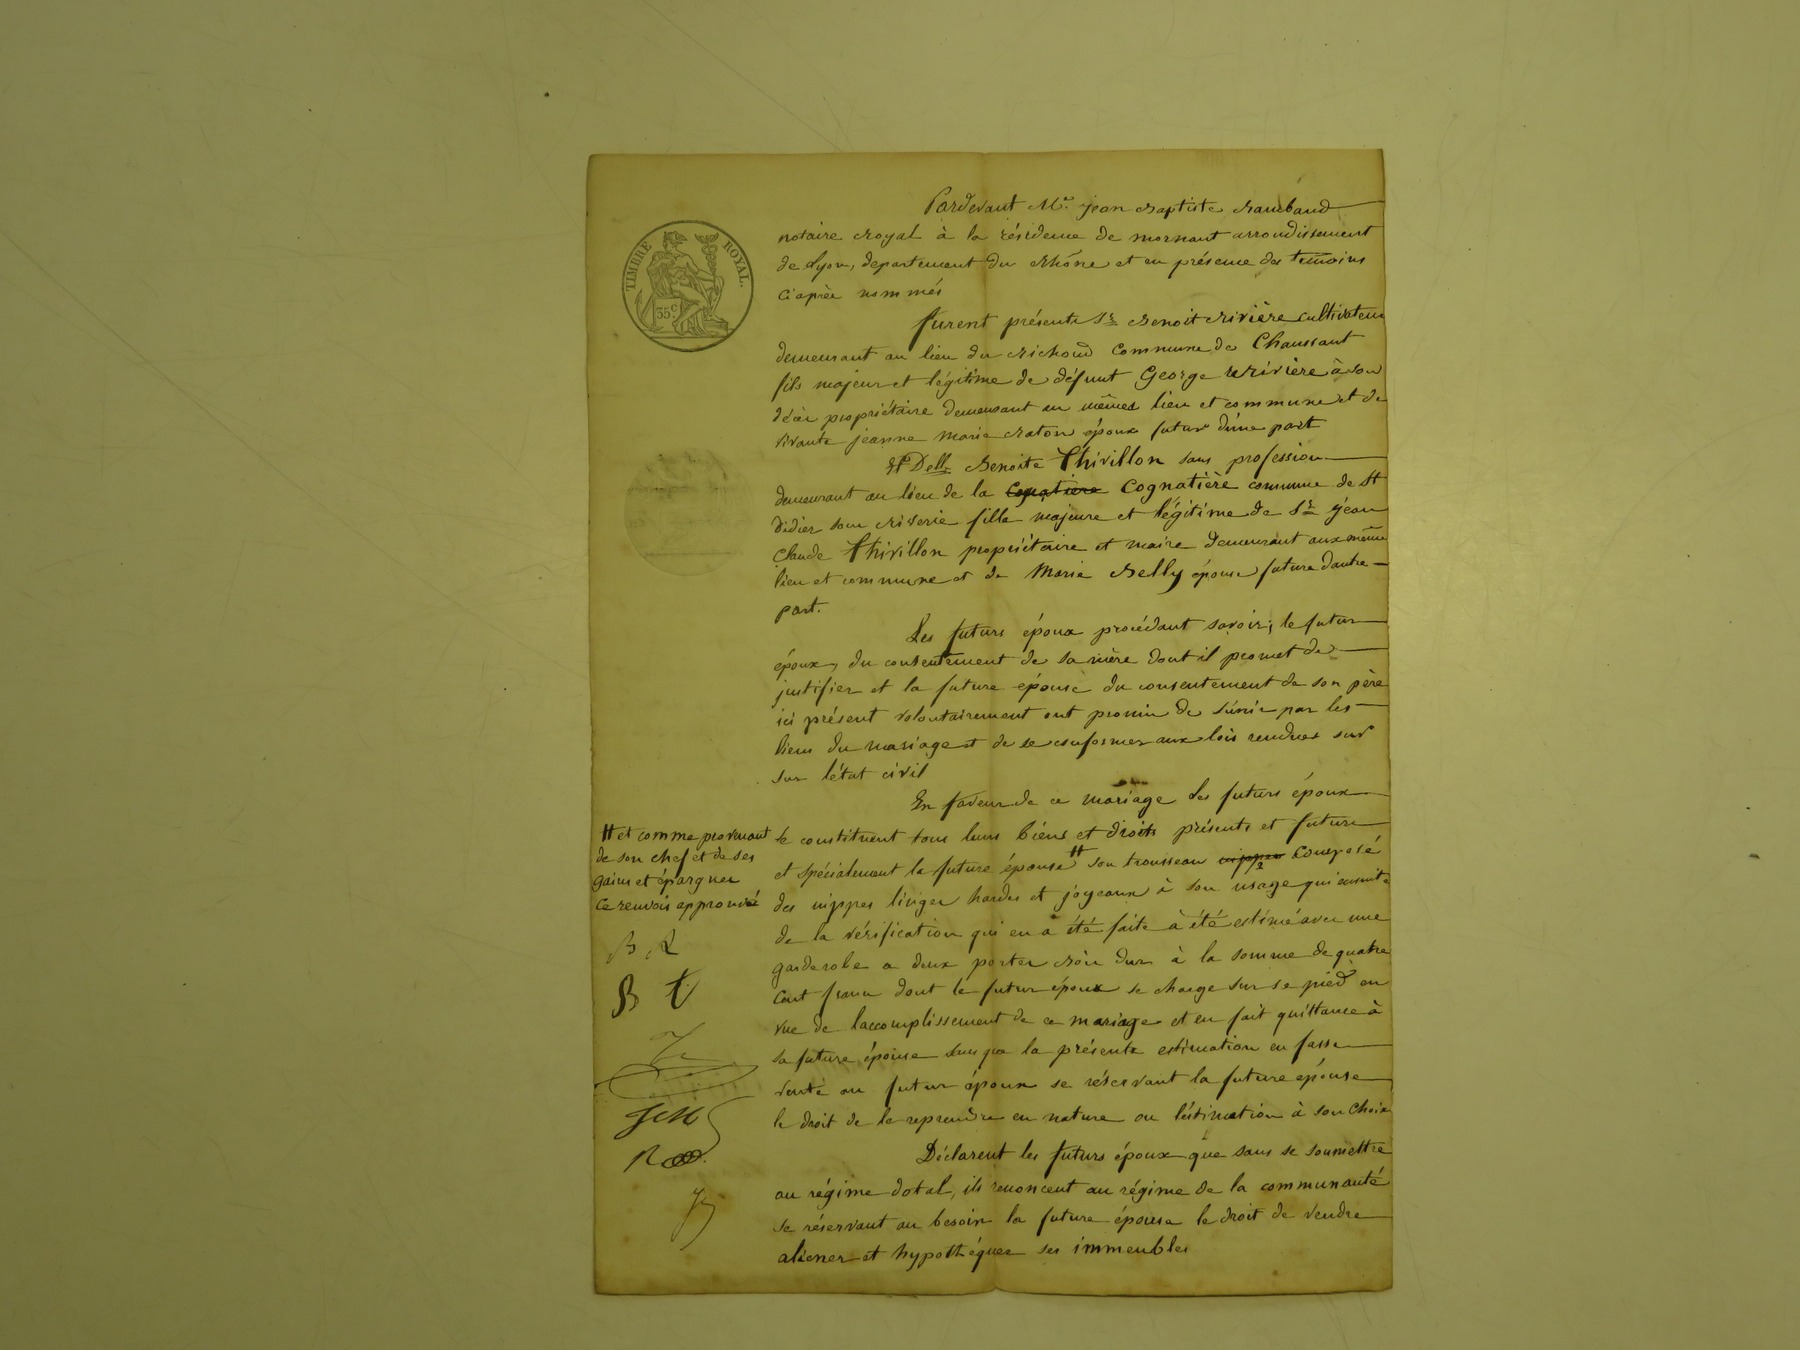 TIMBRE ROYAL.
35 c.
Pardevant Me. jean Baptiste Raimbaud
notaire Royal à la résidence de mornant arrondissement
de Lyon, departement du Rhône et en présence des temoins
ci après nommés
furent présents Sr Benoit Rivière cultivateur
demeurant au lieu du Richoud commune de Chaussant
fils majeur et légitime de défunt George Rivière à son
décès propriétaire demeurant au mêmes lieu et commune et de
vivante jeanne marie Raton époux futur d'une part
Et Delle Benoite Thivillon sans profession
demeurant au lieu de la Cognatiere Cognatière commune de St
Didier sous Riverie fille majeure et légitime de Sr jean
Claude Thivillon propriétaire et maire demeurant aux même
lieu et commune et de Marie Belly épouse future dautre
part.
Les futurs époux procédant savoir; le futur
époux, du consentement de sa mère dont il promet de
justifier et la future épouse du consentement de son père
ici présent volontairement ont promis de s'unir par les
liens du mariage et de se conformer aux lois rendues sur
sur l'état civil
En faveur de ce mariage les futurs époux
se constituent tous leurs biens et droits présents et futurs
et spécialement la future épouse # son trousseau composé
des nippes linges hardes et joyeaux à son usage qui ensuite
de la vérification qui en a été faite à été estimé avec une
garderobe a deux portes bois dur à la somme de quatre
cent francs dont le futur époux se charge sur se pied en
vue de laccomplissement de ce mariage et en fait quittance à
sa future épouse sans que la présente estimation en fasse
vente au futur époux se réservant la future épouse
le droit de le reprendre en nature ou l'estimation à son choix
Déclarent les futurs époux que sans se soumettre
au régime dotal, ils renoncent au régime de la communauté
se réservant au besoin la future épouse le droit de vendre
aliener et hypothéquer ses immeubles
# et comme provenant
de son chef et de ses
gains et épargnes
Ce renvoi approuvé
B R
B t